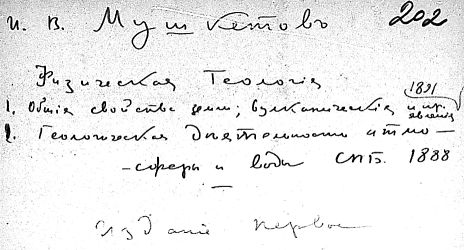 И. В. Мушкетовъ 202
Физическая Геологія
1891
1. Общія свойства земли; вулканическія и пр. явленія
2. Геологическая дѣятельность атмо-
-сферы и воды СПБ. 1888
Изданіе первое